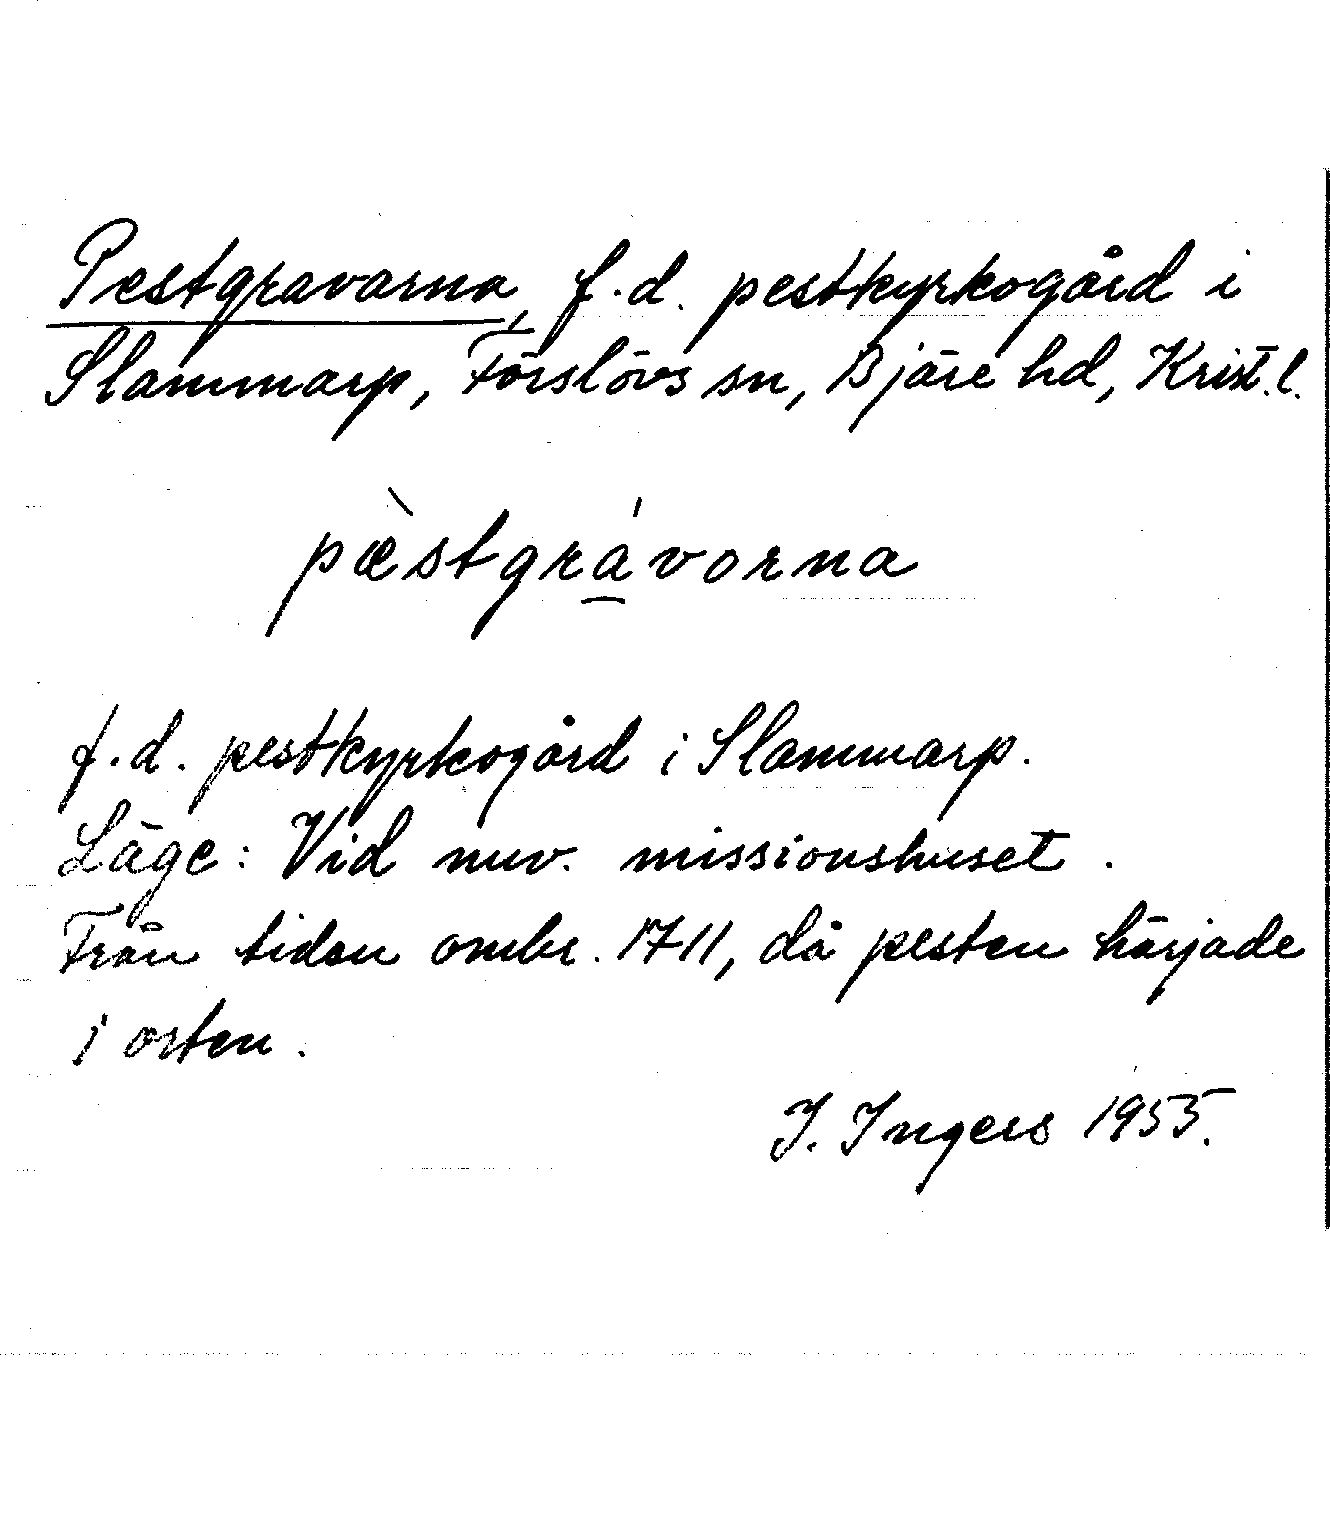 Pestgravarna, f.d. pestkyrkogård i
Slammarp, Förslövs sn, Bjäre hd, Krist.l.
pæ̀stgrá̱vorna
f.d. pestkyrkogård i Slammarp.
Läge: Vid nuv. missionshuset.
Från tiden omkr. 1711, då pesten härjade
i orten.
I. Ingers 1955.